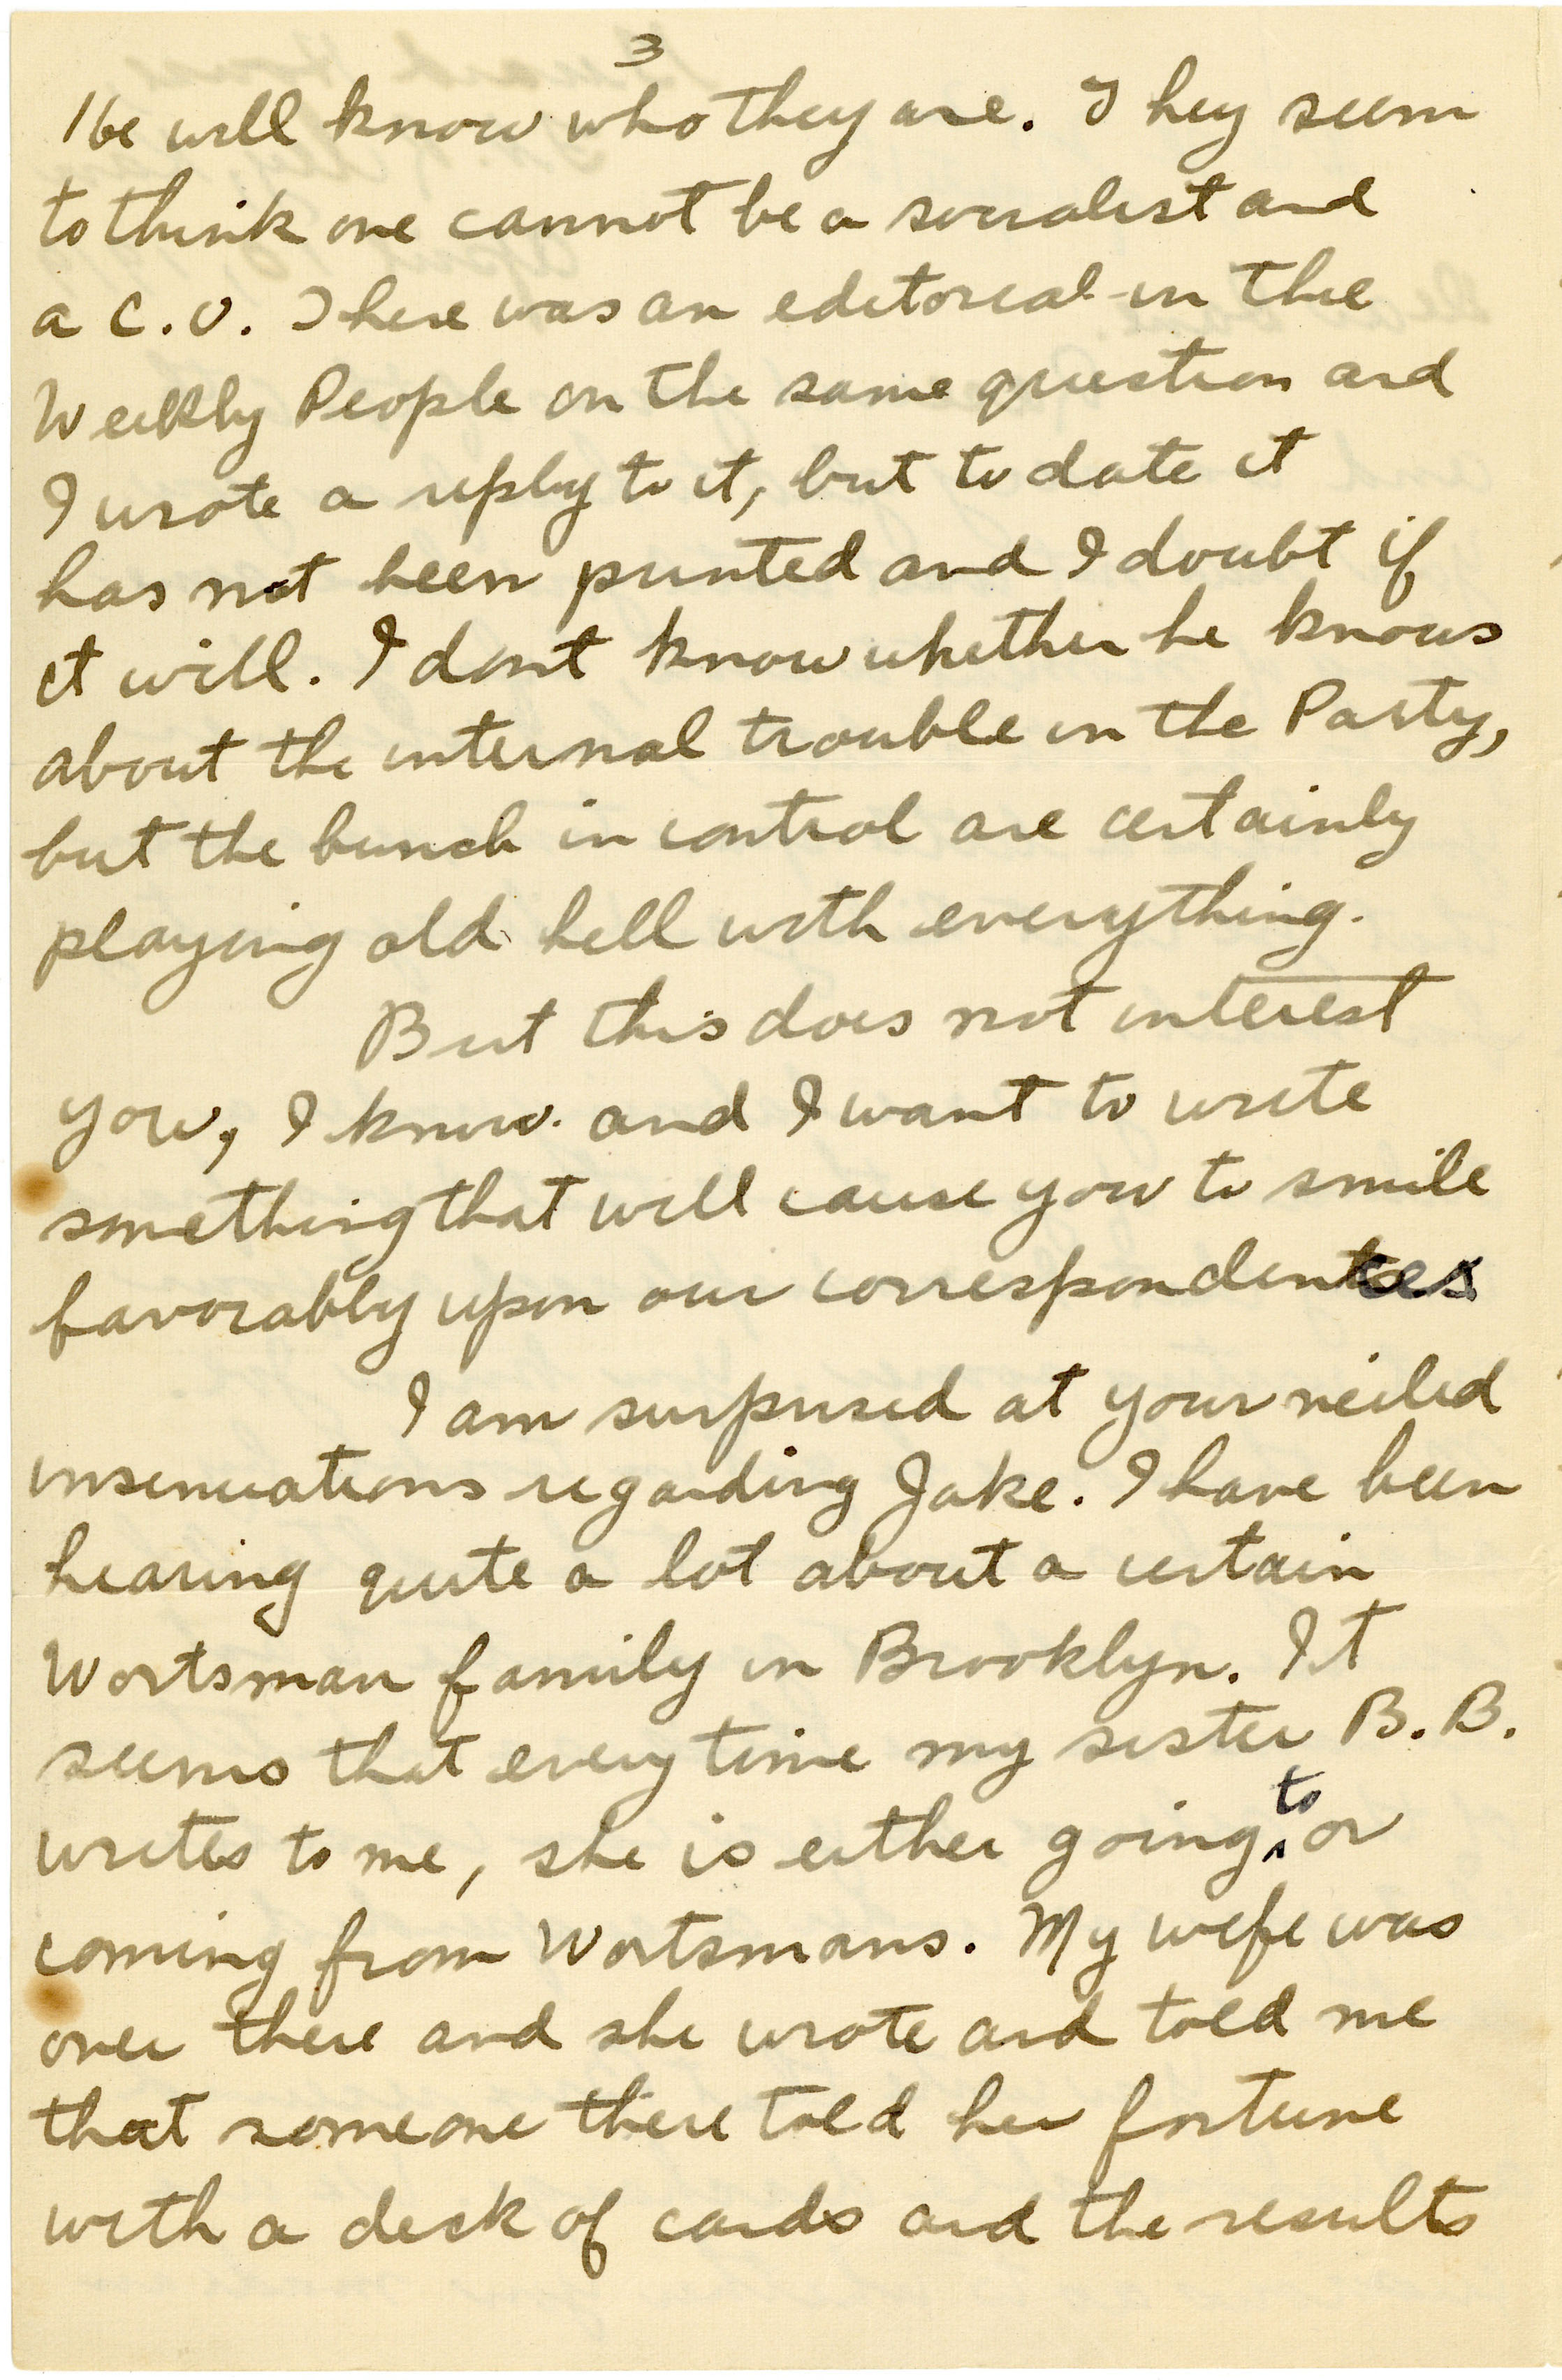 3
He will know who they are. They seem
to think one cannot be a socialist and
a C.O. There was an editorial in the
Weekly People on the same question and
I wrote a reply to it, but to date it
has not been printed and I doubt if
it will. I dont know whether he knows
about the internal trouble in the Party,
but the bunch in control are certainly
playing old hell with everything.
But this does not interest
you, I know. and I want to write
something that will cause you to smile
favorably upon our correspondences
I am surprised at your veiled
insinuations regarding Jake. I have been
hearing quite a lot about a certain
Wortsman family in Brooklyn. It
seems that every time my sister B.B.
writes to me, she is either going to or
coming from Wortsmans. My wife was
over there and she wrote and told me
that someone there told her fortune
with a deck of cards and the results